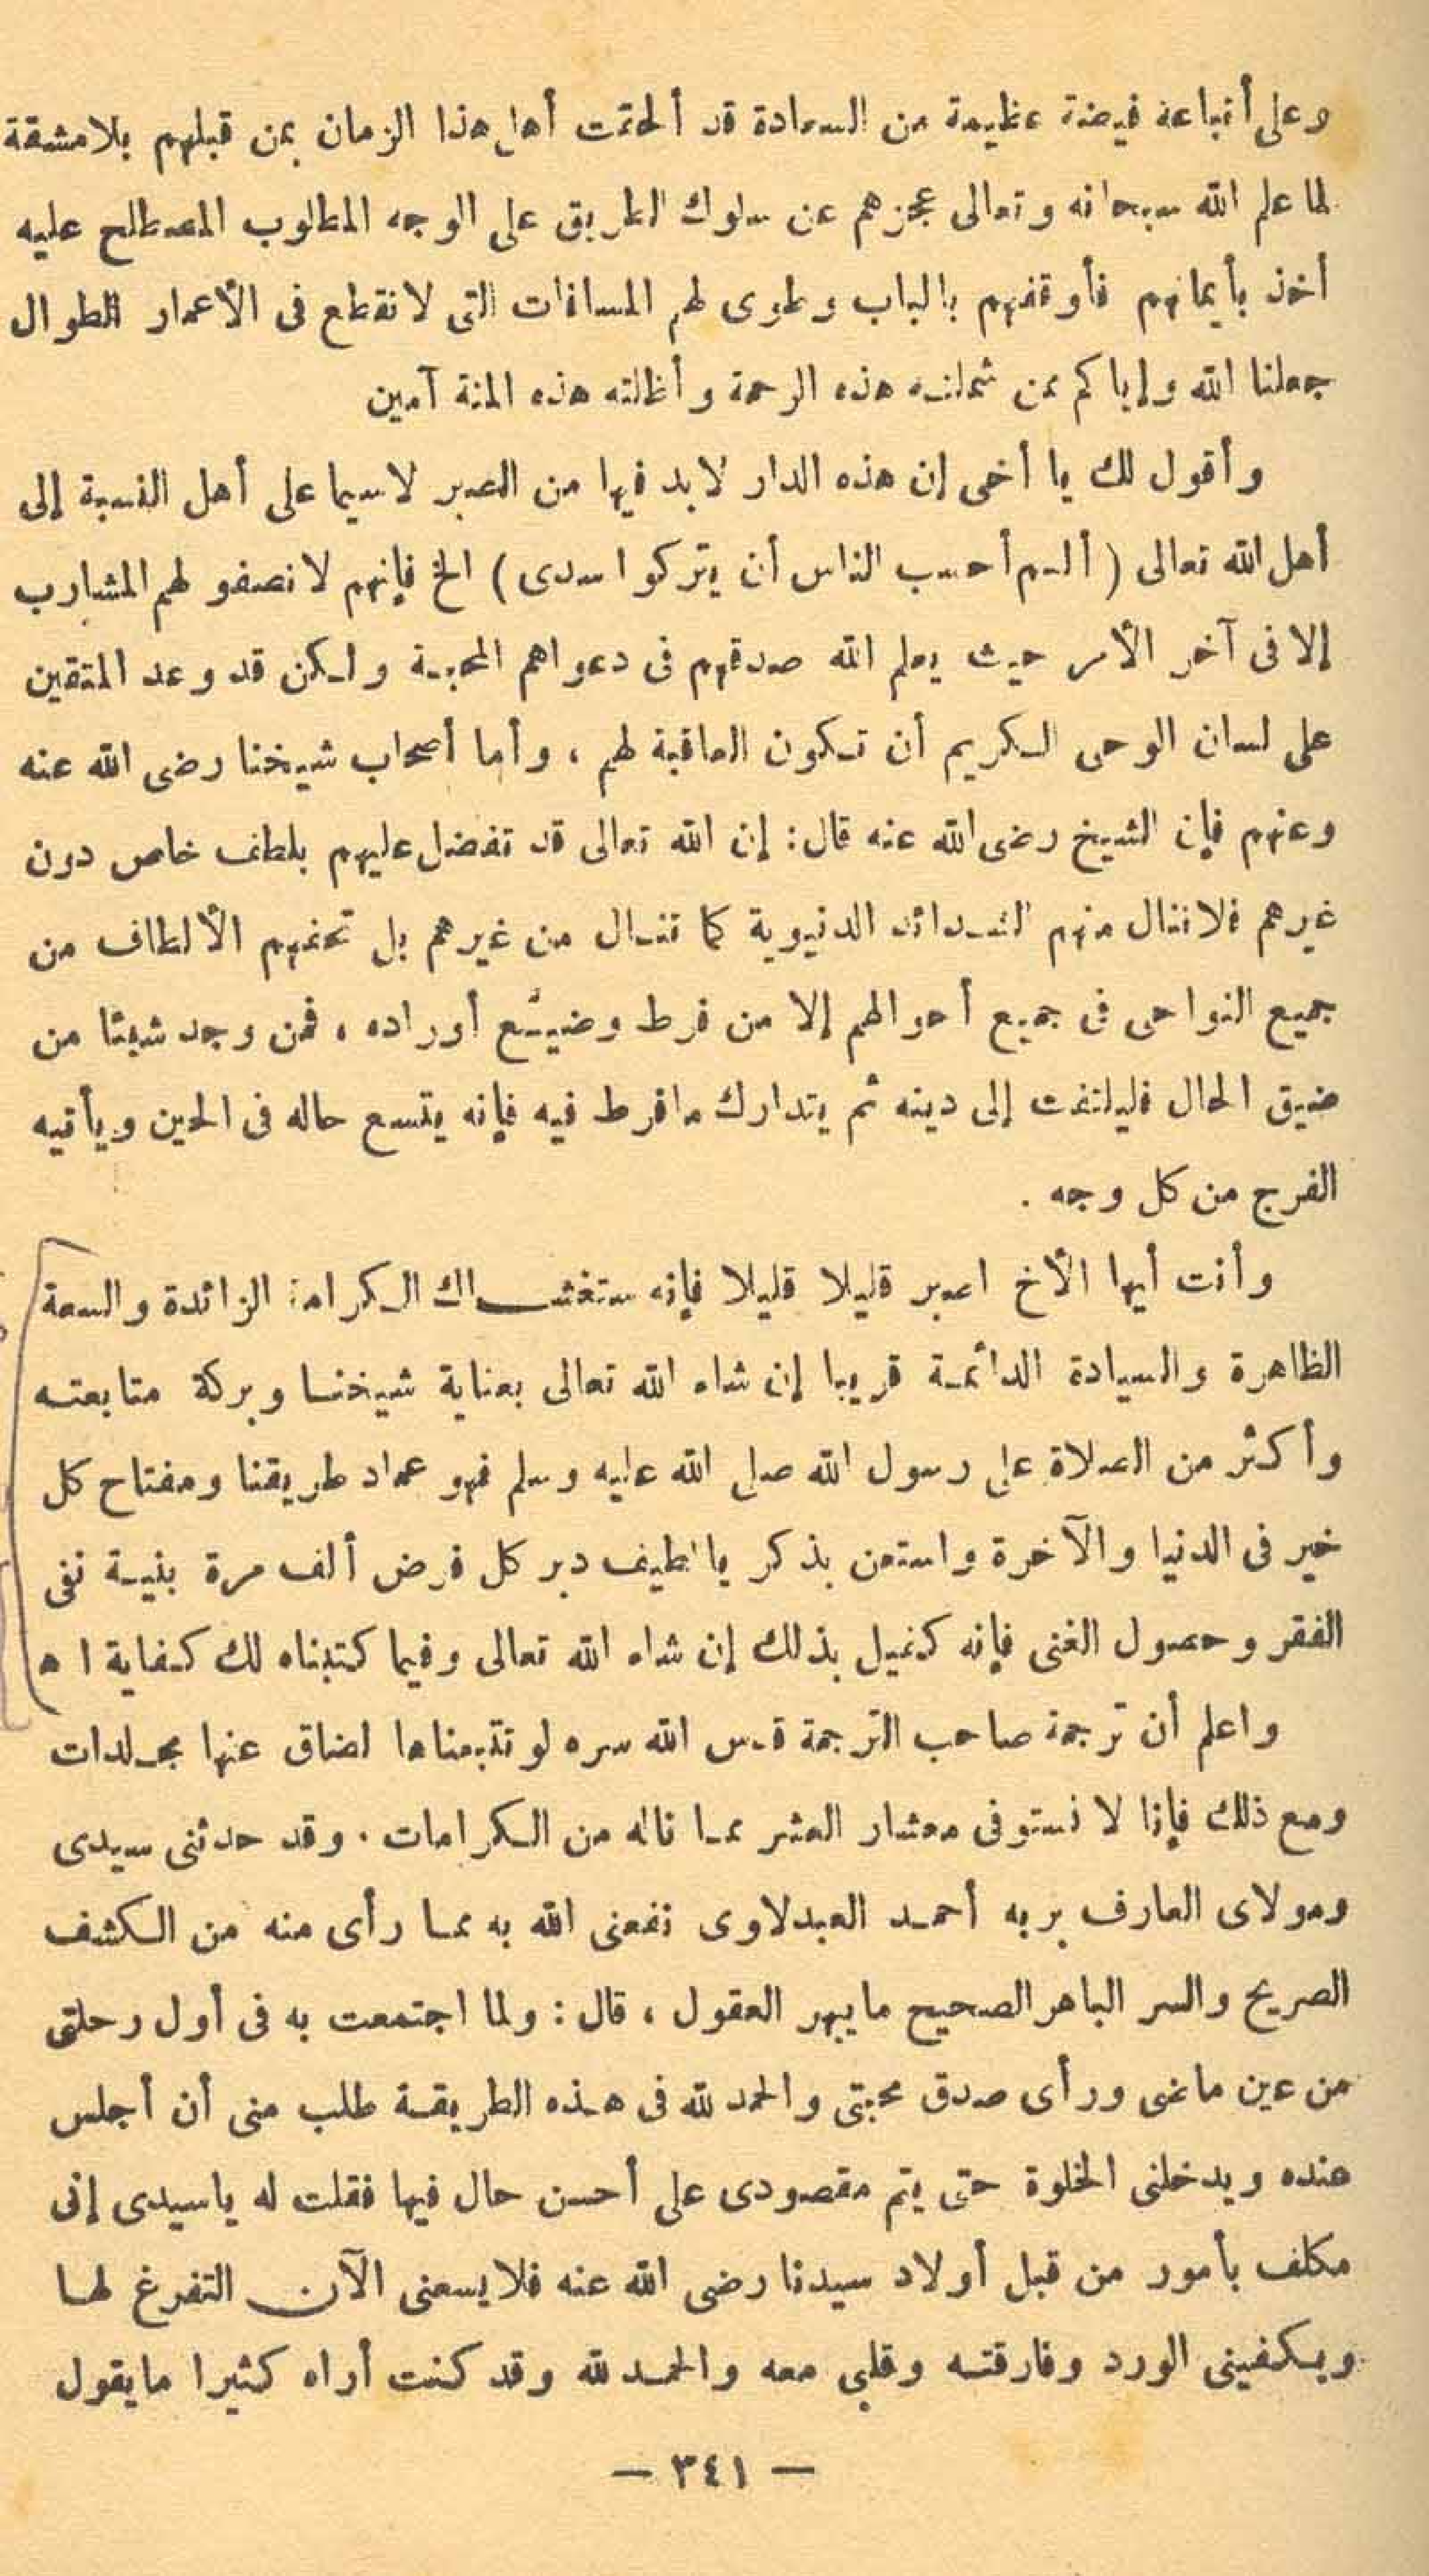 وعلى أتباعه فيضة عظيمة من السعادة قد ألحقت أهل هذا الزمان بمن قبلهم بلامشقة
لما علم الله سبحانه وتعالى عجزهم عن سلوك الطريق على الوجه المطلوب المصطلح عليه
أخذ بأيمانهم فأوقفهم بالباب وطوى لهم المسافات التى لاتقطع فى الأعمار الطوال
جعلنا الله وإياكم ممن شملته هذه الرحمة وأظلته هذه المنة آمين
وأقول لك يا أخى إن هذه الدار لابد فيها من الصبر لاسيما على أهل النسبة إلى
أهل الله تعالى ( ألم أحسب الناس أن يتركوا سدى ) الخ فإنهم لاتصفو لهم المشارب
إلا فى آخر الأمر حيث يعلم الله صدقهم فى دعواهم المحبة ولكن قد وعد المتقين
على لسان الوحى الكريم أن تكون العاقبة لهم ، وأما أصحاب شيخنا رضى الله عنه
وعنهم فإن الشيخ رضى الله عنه قال : إن الله تعالى قد تفضل عليهم بلطف خاص دون
غيرهم فلاتنال منهم الشدائد الدنيوية كما تنال من غيرهم بل تحفهم الألطاف من
جميع النواحى فى جميع أحوالهم إلا من فرط وضيّع أوراده ، فمن وجد شيئا من
ضيق الحال فليلتفت إلى دينه ثم يتدارك مافرط فيه فإنه يتسع حاله فى الحين ويأتيه
الفرج من كل وجه .
وأنت أيها الأخ اصبر قليلا قليلا فإنه ستغشاك الكرامة الزائدة والسعة
الظاهرة والسيادة الدائمة قريبا إن شاء الله تعالى بعناية شيخنا وبركة متابعته
وأكثر من الصلاة على رسول الله صلى الله عليه وسلم فهو عماد طريقنا ومفتاح كل
خير فى الدنيا والآخرة واستعن بذكر يا لطيف دبر كل فرض ألف مرة بنية نفى
الفقر وحصول الغنى فإنه كفيل بذلك إن شاء الله تعالى وفيما كتبناه لك كفاية ا ه
واعلم أن ترجمة صاحب الترجمة قدس الله سره لو تتبعناها لضاق عنها مجلدات
ومع ذلك فإنا لا نستوفى معشار العشر مما ناله من الكرامات . وقد حدثنى سيدى
ومولاى العارف بربه أحمد العبدلاوى نفعنى الله به مما رأى منه من الكشف
الصريح والسر الباهر الصحيح مايبهر العقول ، قال : ولما اجتمعت به فى أول رحلتى
من عين ماضى ورأى صدق محبتى والحمد لله فى هذه الطريقة طلب منى أن أجلس
عنده ويدخلنى الخلوة حتى يتم مقصودى على أحسن حال فيها فقلت له ياسيدى إنى
مكلف بأمور من قبل أولاد سيدنا رضى الله عنه فلايسعنى الآن التفرغ لها
ويكفينى الورد وفارقته وقلبى معه والحمد لله وقد كنت أراه كثيرا مايقول
— ٣٤١ —